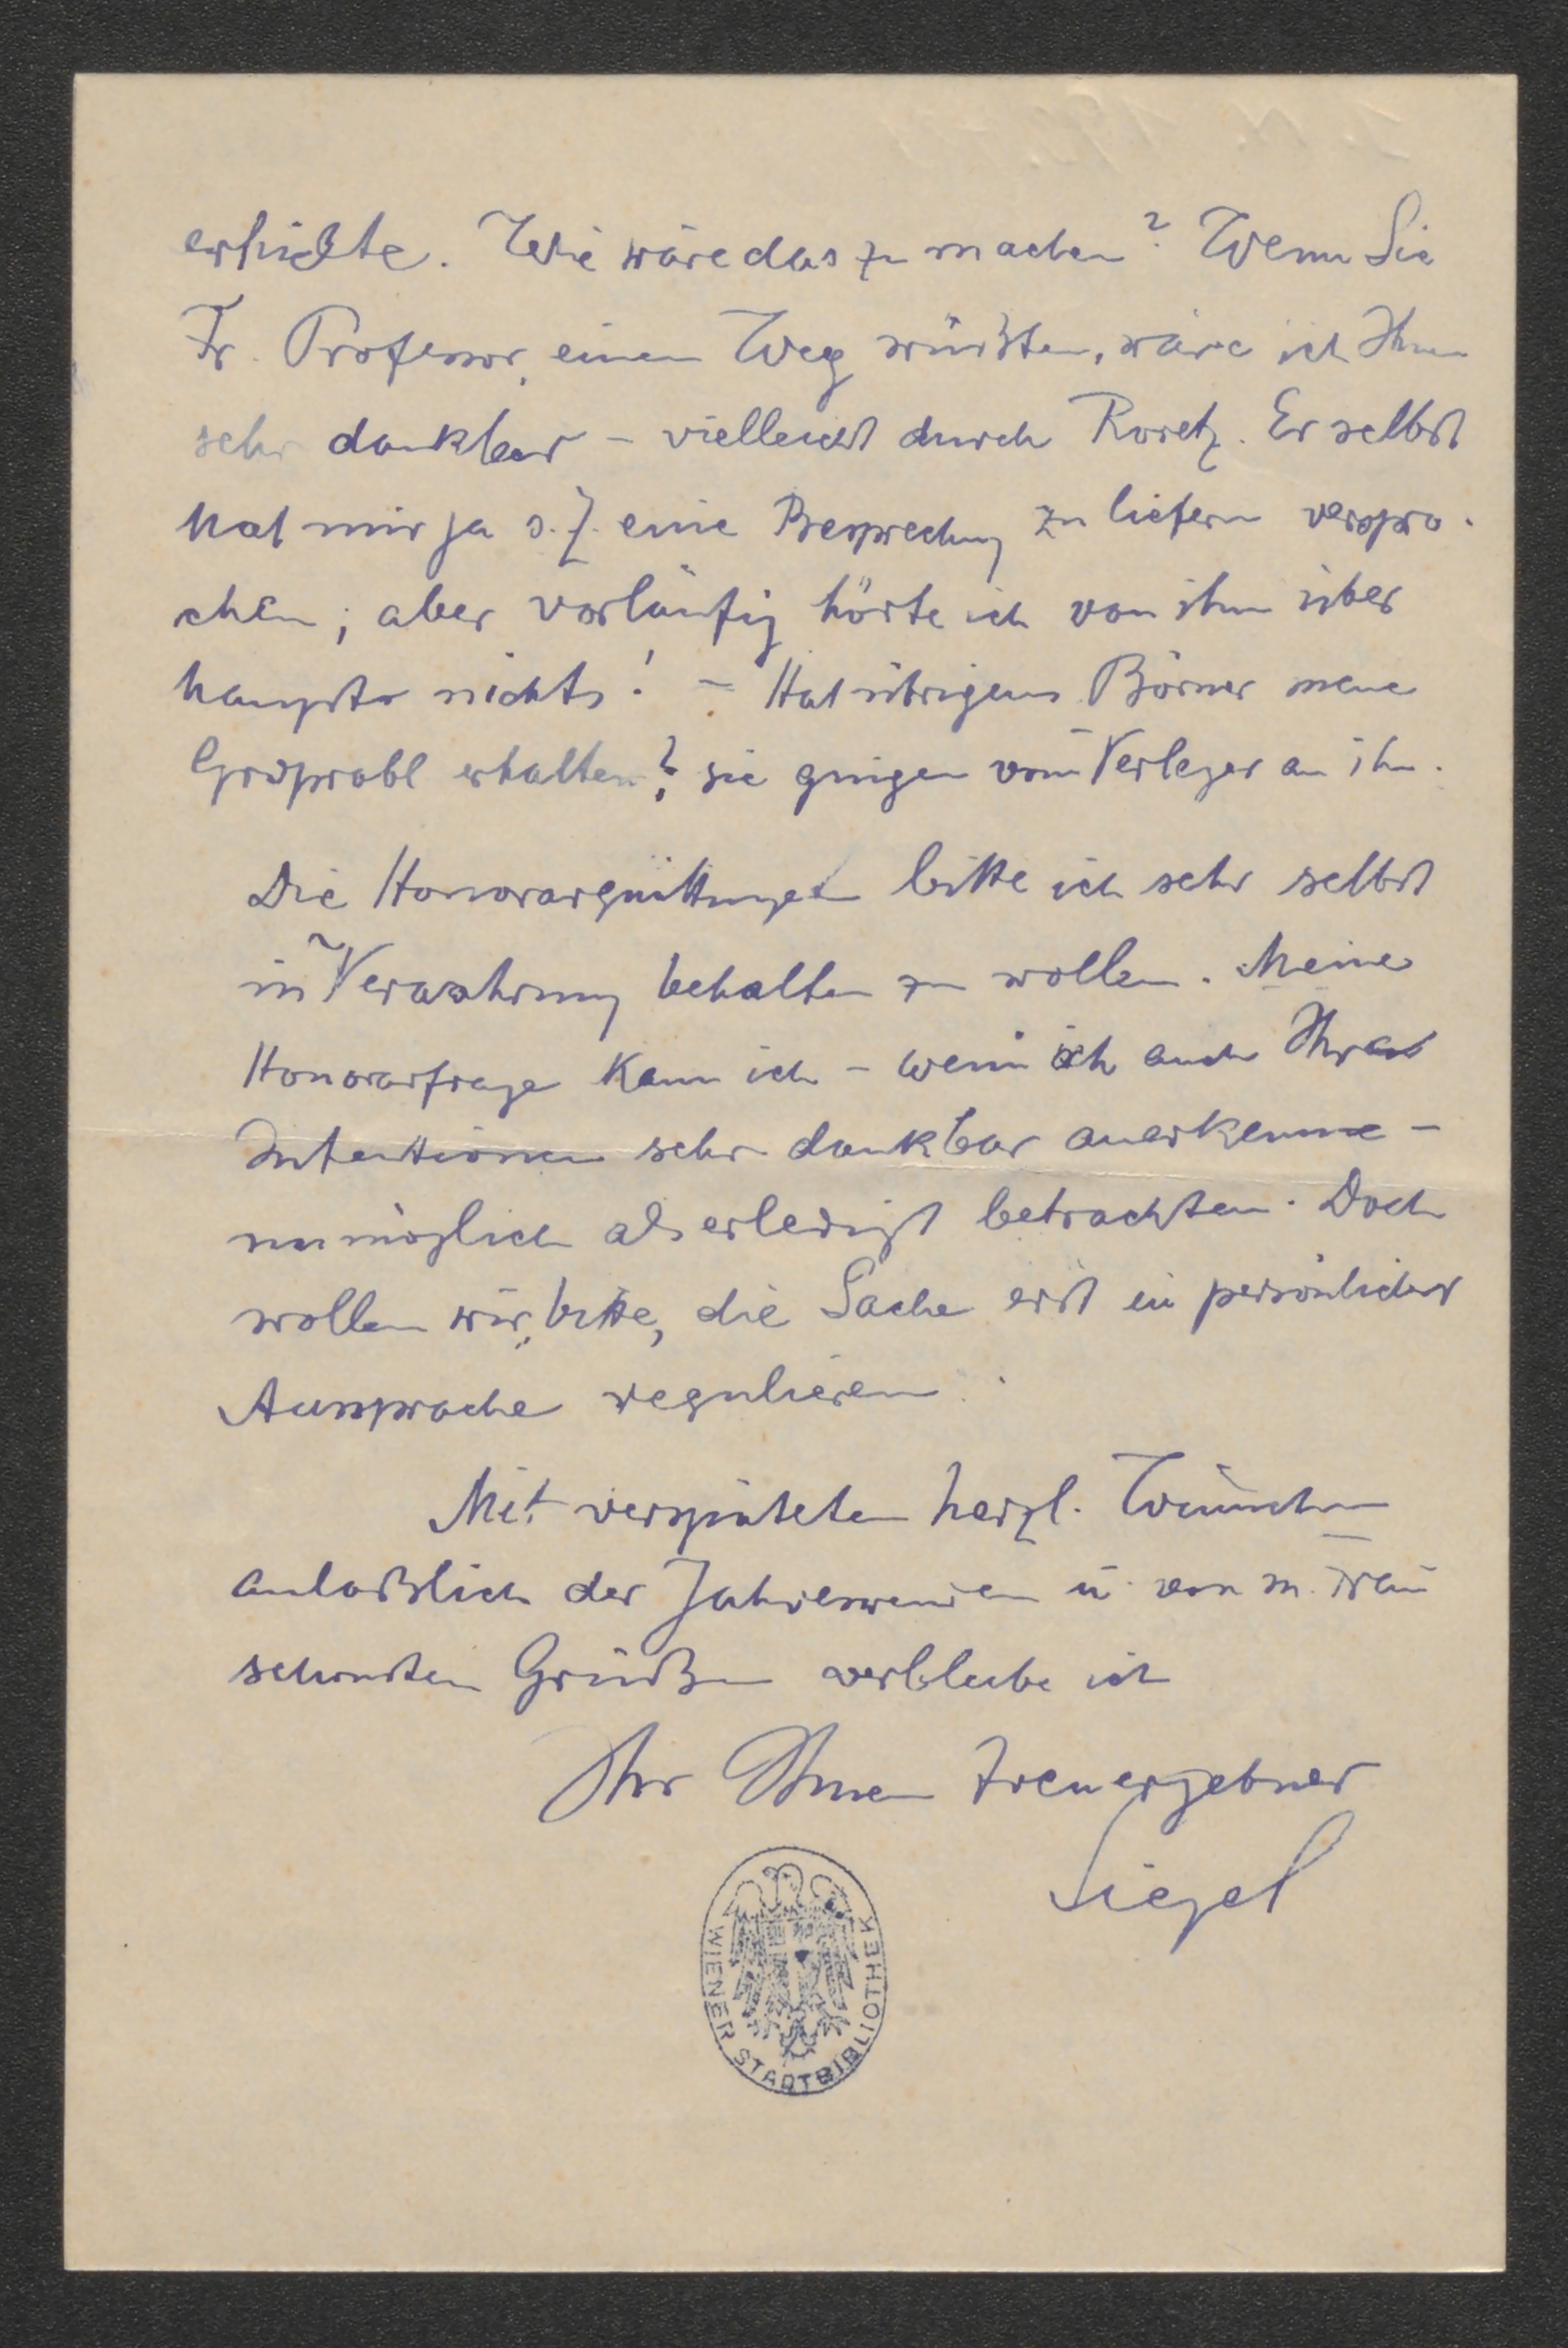 erhielte. Wie wäre das zu machen? Wenn Sie
Fr. Professor, einen Weg wüßten, wäre ich Ihnen
sehr dankbar – vielleicht durch Roretz. Er selbst
hat mir ja s. Z. eine Besprechung zu liefern verspro-
chen; aber vorläufig hörte ich von ihm über
haupts nichts! – Hat übrigens Börner meine
erhalten? sie gingen vom Verleger an ihn.
Die Honorarquittungen bitte ich sehr selbst
in Verwahrung behalten zu wollen. Meine
Honorarfrage kann ich – wenn ich auch Ihre
Intentionen sehr dankbar anerkenne –
unmöglich als erledigt betrachten. Doch
wollen wir, bitte, die Sache erst in persönlicher
Aussprache regulieren.
Mit verspäteten herzl. Wünschen
anläßlich der Jahreswenden u. von m. Frau
schönsten Grüßen verbleibe ich
Ihr Ihnen treuergebner
Siegel
WIENER STADTBIBLIOTHEK